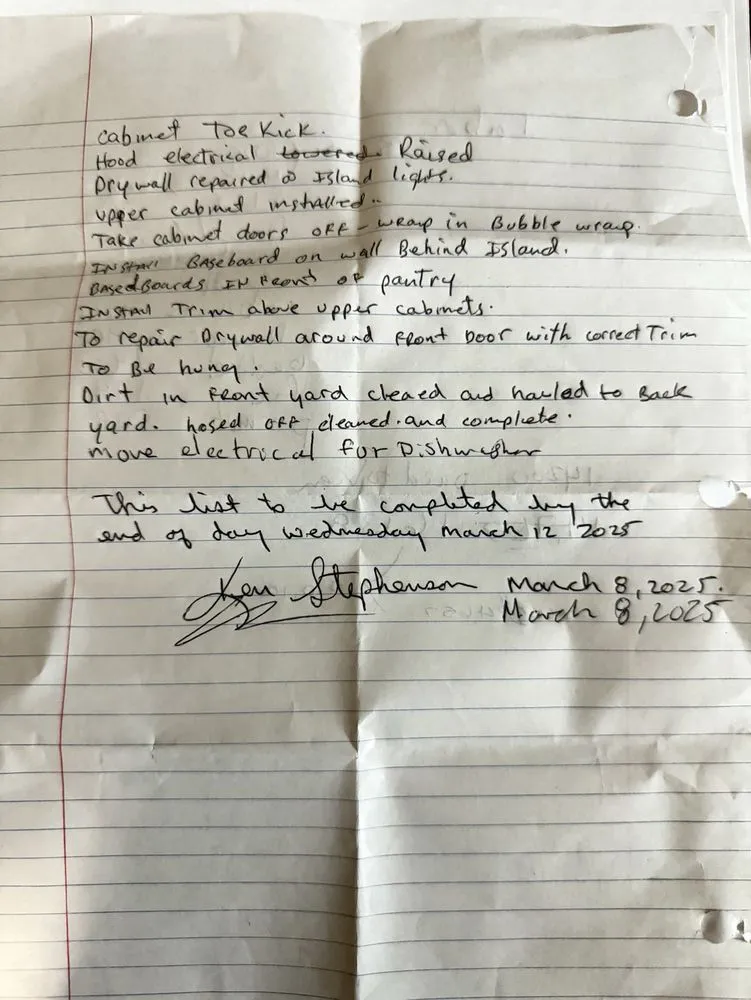 cabinet Toe Kick.
Hood electrical lowered Raised
Drywall repaired @ Island lights.
upper cabinet installed..
Take cabinet doors OFF - wrap in Bubble wrap.
INStall Baseboard on wall Behind Island.
BASEdBoards IN FRont OF pantry
INStall Trim above upper cabinets.
To repair Drywall around FRont Door with correct Trim
To Be hung.
Dirt in FRont yard cleaed and hauled to Back
yard. hosed OFF cleaned. and complete.
move electrical for Dishwasher
This list to be completed by the
end of day wednesday march 12 2025
Ken Stephenson March 8, 2025.
March 8, 2025